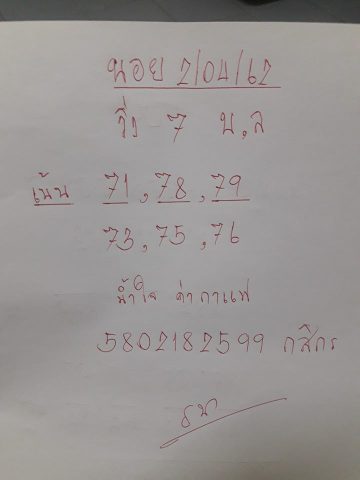 นอย 2/04/62
วิ่ง 7 บ,ล
เน้น 71, 78, 79
73, 75, 76
น้ำใจ ค่ากาแฟ
5802182599 กสิกร